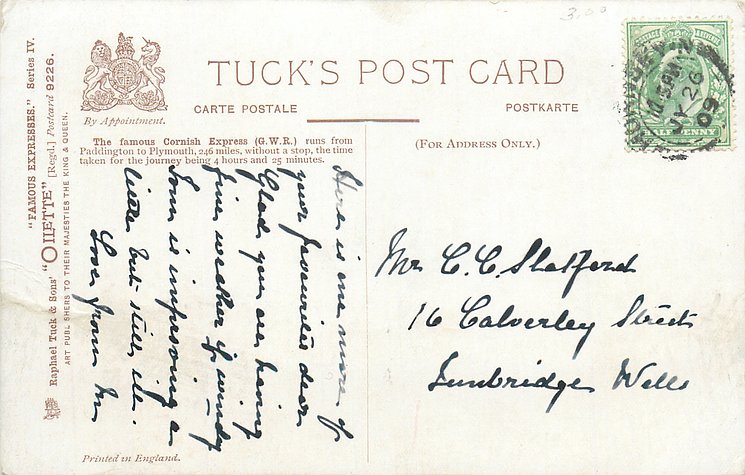 "FAMOUS EXPRESSES." Series IV.
Raphael Tuck & Sons' "OILETTE" [Regd.] Postcard 9226.
ART PUBLISHERS TO THEIR MAJESTIES THE KING & QUEEN.
By Appointment.
TUCK'S POST CARD
CARTE POSTALE
POSTKARTE
The famous Cornish Express (G.W.R.) runs from
Paddington to Plymouth, 246 miles, without a stop, the time
taken for the journey being 4 hours and 25 minutes.
(FOR ADDRESS ONLY.)
Here is one more of
your favourites dear
Glad you are having
fine weather if windy
is improving a
little but still ill.
Love from
Mr C. C. Shelford
16 Calverley Street
Tunbridge Wells
Printed in England.
3.00
11.15 PM
MY 26
09
POSTAGE & REVENUE
HALFPENNY